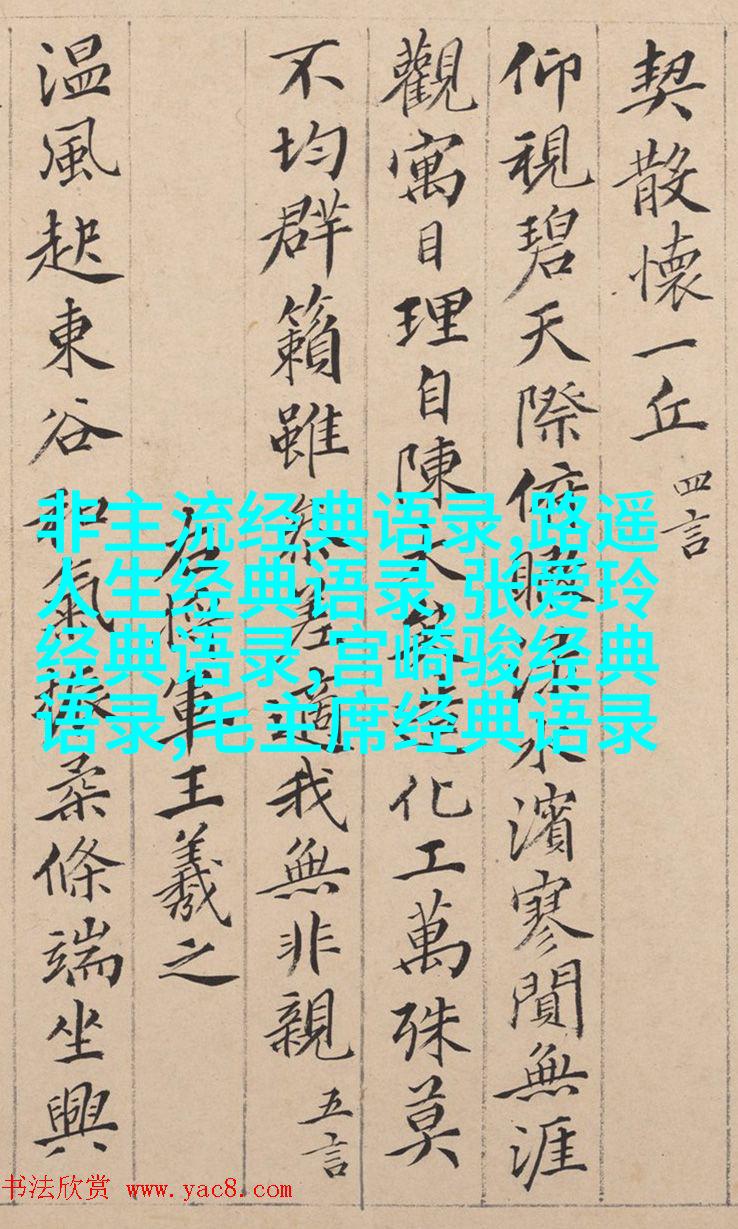 契散懷一丘 四言
仰視碧天際俯瞰淥水濱寥閴無涯
觀寓目理自陳大矣造化工萬殊莫
不均群籟雖參差適我無非親 五言
右將軍王羲之
温風起東谷和氣振柔條端坐興
非主流经典语录,路遥
人生经典语录,张爱玲
经典语录,宫崎骏经典
语录,毛主席经典语录
书法欣赏 www.yac8.com